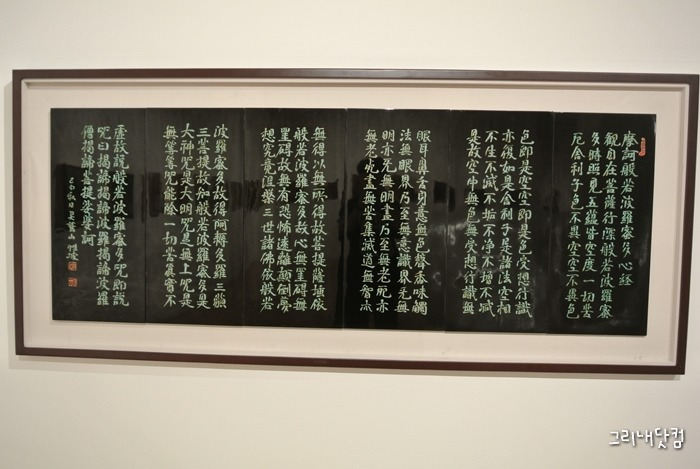 摩訶般若波羅蜜多心經
觀自在菩薩行深般若波羅蜜
多時照見五蘊皆空度一切苦
厄舍利子色不異空空不異色
色即是空空即是色受想行識
亦復如是舍利子是諸法空相
不生不滅不垢不淨不增不減
是故空中無色無受想行識無
眼耳鼻舌身意無色聲香味觸
法無眼界乃至無意識界无無
明亦无無明盡乃至無老死亦
無老死盡無苦集滅道無智亦
無得以無所得故菩提薩埵依
般若波羅蜜多故心無罣碍無
罣碍故無有恐怖遠離顚倒夢
想究竟涅槃三世諸佛依般若
波羅蜜多故得阿耨多羅三藐
三菩提故知般若波羅蜜多是
大神咒是大明咒是無上咒是
無等等咒能除一切苦眞實不
虛故說般若波羅蜜多咒即說
咒曰揭諦揭諦波羅揭諦波羅
僧揭諦菩提娑婆訶
그리내닷컴